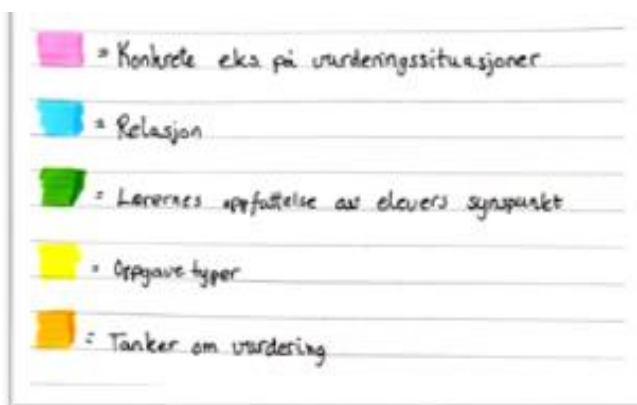 = Konkrete eks på vurderingssituasjoner
= Relasjon
= Lærernes oppfattelse av elevers synspunkt
= Oppgave typer
= Tanker om vurdering